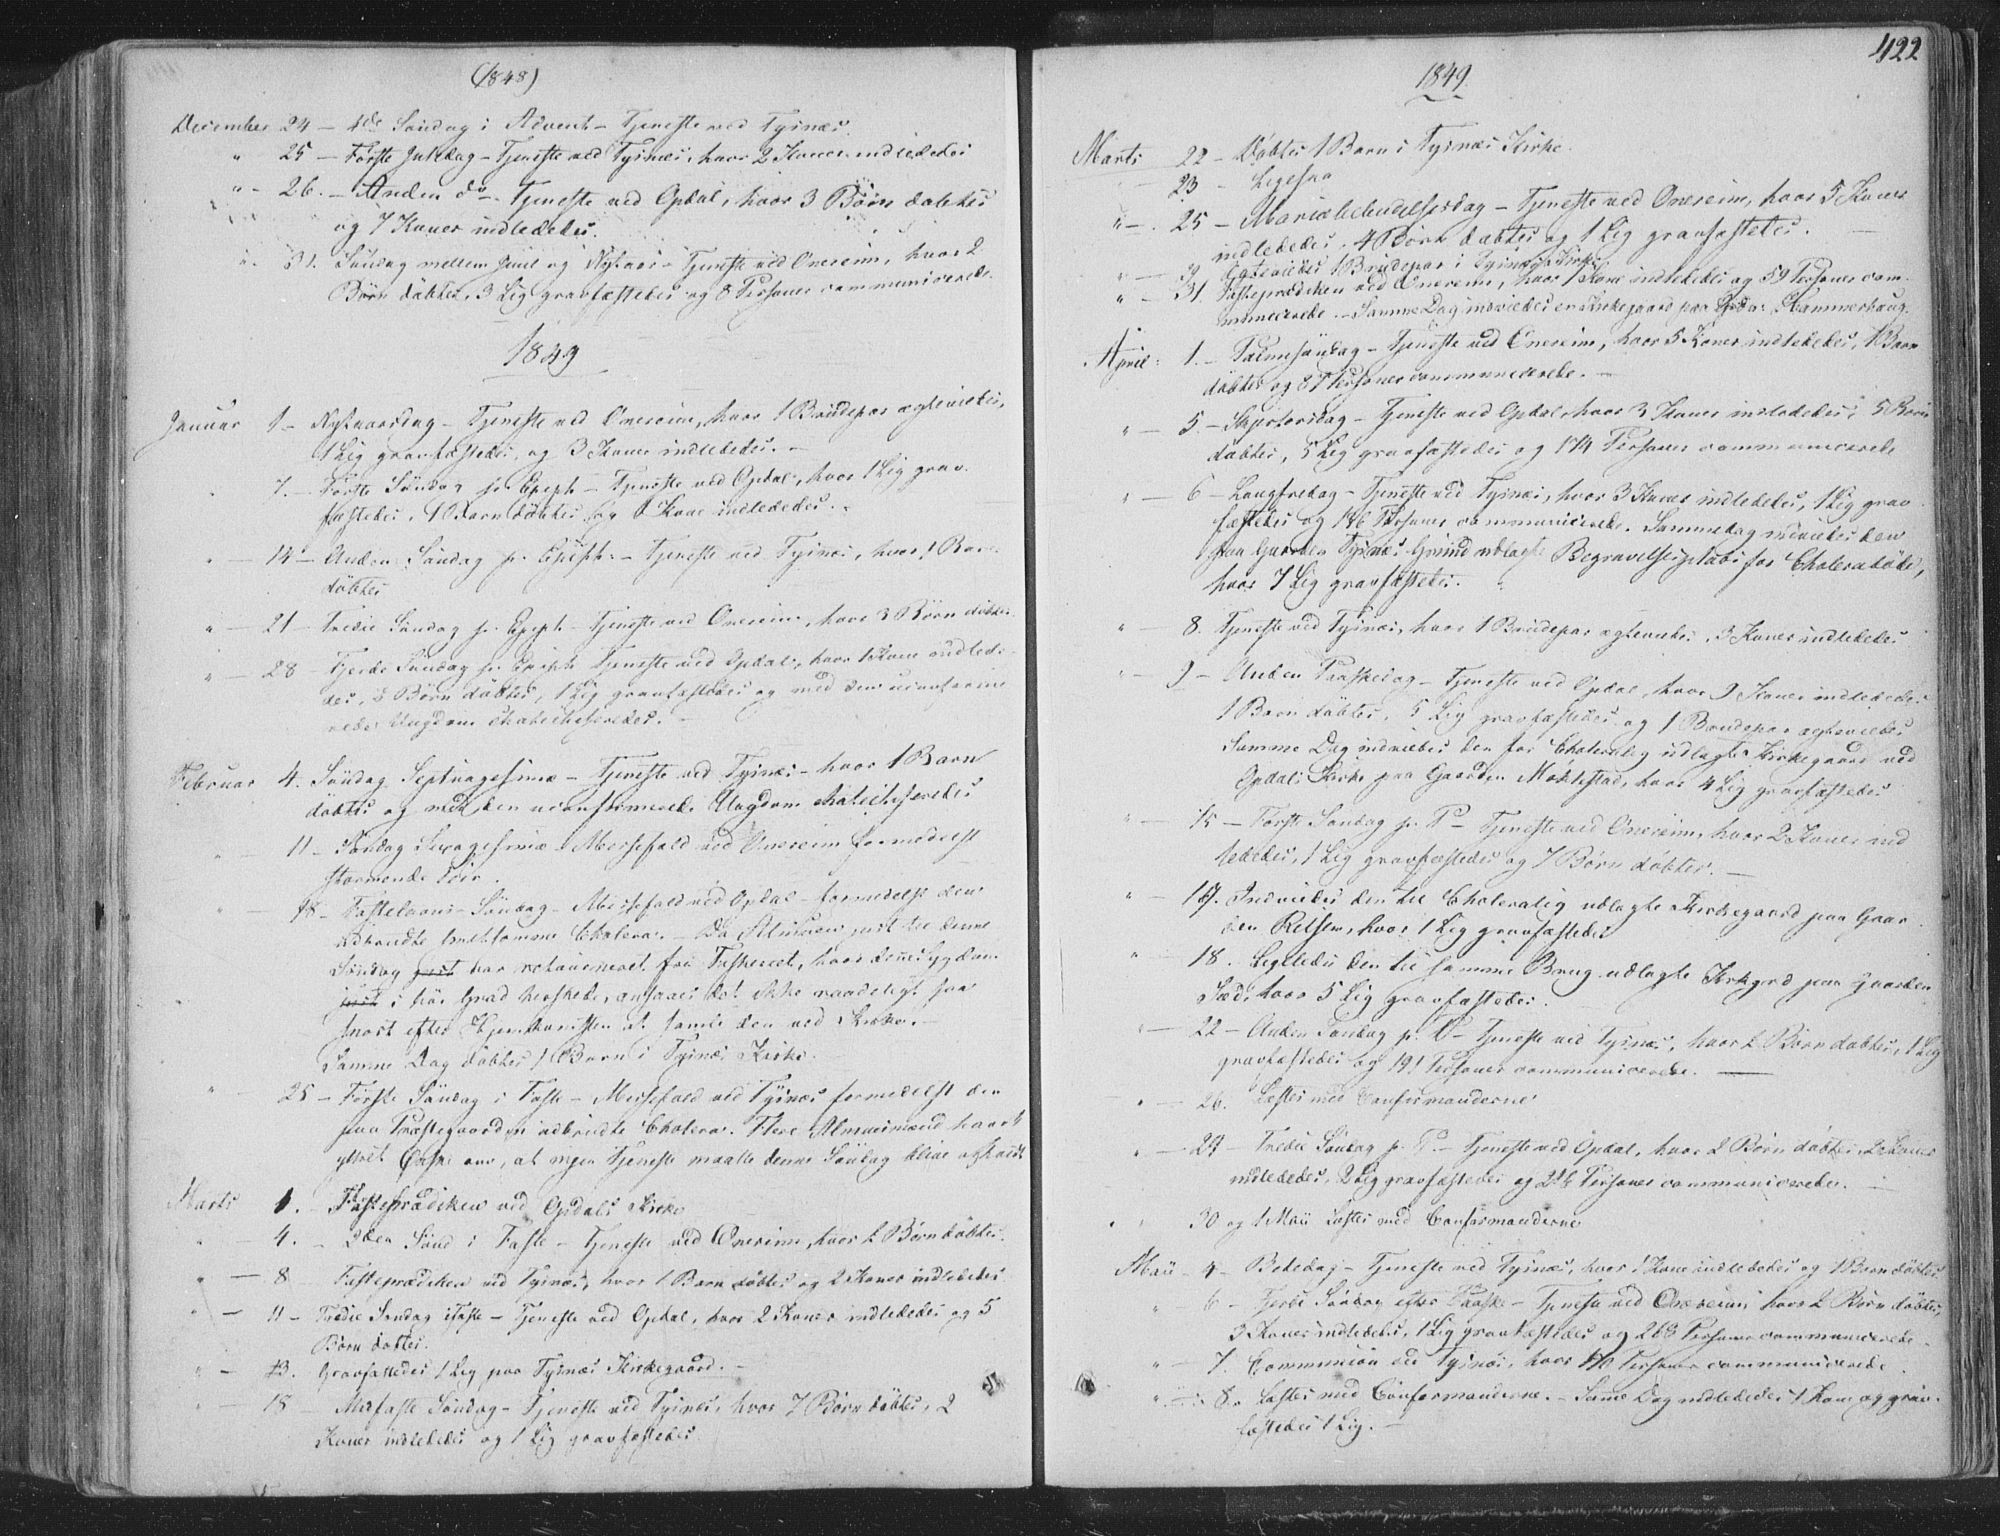 (1848)
December 24 – 4de Søndag i Advent – Tjeneste ved Tysnæs.
" 25 – Første Juledag – Tjeneste ved Tysnæs, hvor 2 Koner indlededes
" – 26. – Anden do – Tjeneste ved Opdal, hvor 3 Børn døbtes
og 7 Koner indlededes.
" 31. Søndag mellem Juul og Nytaar – Tjeneste ved Onereim, hvor 2
Børn døbtes, 3 Lig gravfæstedes og 8 Personer communicerede.
1849
Januar 1 – Nytaarsdag – Tjeneste ved Onereim, hvor 1 Brudepar ægteviedes,
1 Lig gravfæstedes, og 3 Koner indlededes. –
7. – Første Søndag p. Epiph – Tjeneste ved Opdal, hvor 1 Lig grav-
fæstedes, Børn døbtes og Kone indlededes. –
" – 14 – Anden Søndag p. Epiph. – Tjeneste ved Tysnæs, hvor 1 Barn
døbtes
" – 21 – Tredie Søndag p. Epiph – Tjeneste ved Onereim, hvor 3 Børn døbtes
" – 28 – Fjerde Søndag p. Epiph Tjeneste ved Opdal, hvor 1 Kone indlede-
des, 3 Børn døbtes, 1 Lig gravfæstedes og med den uconfirme-
rede Ungdom chatechiseredes. –
Februar 4. Søndag Septuagesimæ – Tjeneste ved Tysnæs – hvor 1 Barn
døbtes og med den uconfirmerede Ungdom chatechiseredes
11 – Søndag Sexagesimæ – Messefald ved Onereim formedelst
stormende Veir.
– 18 – Fastelavns-Søndag – Messefald ved Opdal – formedelst den
udbrudte smitsomme Cholera. – Da Almuen just til denne
Søndag har retourneret fra Fiskeriet, hvor denne Sygdom
i høi Grad herskede, ansaaes det ikke raadeligt saa
snart efter Hjemkomsten at samle den ved Kirke. –
Samme Dag døbtes 1 Barn i Tysnæs Kirke.
" 25 – Første Søndag i Faste – Messefald ved Tysnæs formedelst den
paa Præstegaarden udbrudte Cholera. Flere Almuesmænd havde
yttret Ønske om, at ingen Tjeneste maatte denne Søndag blive afholdt
Marts 1. – Fasteprædiken ved Opdals Kirke
" – 4. – 2den Sønd i Faste – Tjeneste ved Onereim, hvor 2 Børn døbtes.
" – 8 – Fasteprædiken ved Tysnæs, hvor 1 Barn døbtes og 2 Koner indlededes
" – 11 – Tredie Søndag i Faste – Tjeneste ved Opdal, hvor 2 Koner indlededes og 5
Børn døbtes.
" – 13. Gravfæstedes 1 Lig paa Tysnæs Kirkegaard. –
" – 18 – Midfaste Søndag – Tjeneste ved Tysnæs, hvor 7 Børn døbtes, 2
Koner indlededes og 1 Lig gravfæstedes
422
1849.
Marts 22 – Døbtes 1 Barn i Tysnæs Kirke.
23 – Ligesaa
" – 25 – Mariæ Bebudelsesdag – Tjeneste ved Onereim, hvor 5 Koner
indlededes, 4 Børn døbtes og 1 Lig gravfæstedes.
" – Ægteviedes 1 Brudepar i Tysnæs Kirke
" – 31. Fasteprædiken ved Onereim, hvor 1 Kone indlededes og 59 Personer com-
municerede. – Samme Dag indviedes en Kirkegaard paa Hammerhaug.
April: 1. – Palmesøndag – Tjeneste ved Onereim, hvor 5 Koner indlededes, 1 Barn
døbtes og 87 Personer communicerede. –
" – 5. – Skjertorsdag – Tjeneste ved Opdal, hvor 3 Koner indlededes, 5 Børn
døbtes, 5 Lig gravfæstedes og 174 Personer communicerede
" – 6 – Langfredag – Tjeneste ved Tysnæs, hvor 3 Koner indlededes, 1 Lig grav-
fæstedes og 146 Personer communicerede. Sammedag indviedes den
paa Gaarden Tysnæs Grund udlagte Begravelsesplads for Choleradøde,
hvor 7 Lig gravfæstedes.
" – 8. Tjeneste ved Tysnæs, hvor 1 Brudepar ægteviedes, 3 Koner indlededes
" – 9 – Anden Paaskedag – Tjeneste ved Opdal, hvor 9 Koner indlededes
1 Barn døbtes, 5 Lig gravfæstedes og 1 Brudepar ægteviedes
Samme Dag indviedes den for Choleralig udlagte Kirkegaard ved
Opdals Kirke paa Gaarden Møklestad, hvor 4 Lig gravfæstedes
" – 15 – Første Søndag p. P – Tjeneste ved Onereim, hvor 2 Koner ind-
lededes, 1 Lig gravfæstedes og 7 Børn døbtes. –
" – 17. Indviedes den til Choleralig udlagte Kirkegaard paa Gaar-
den Reksen, hvor 1 Lig gravfæstedes
" – 18. Ligeledes den til samme Brug udlagte Kirkgrd paa Gaarden
, hvor 5 Lig gravfæstedes.
" – 22 – Anden Søndag p. P – Tjeneste ved Tysnæs, hvor 2 Børn døbtes, 1 Lig
gravfæstedes og 191 Personer communicerede. –
" – 26. Læstes med Confirmanderne
" – 29 – Tredie Søndag p. P. – Tjeneste ved Opdal, hvor 2 Børn døbtes, 2 Koner
indlededes, 2 Lig gravfæstedes og Personer communicerede. –
" 30 og 1 Maii Læstes med Confirmanderne
Maii – 4 – Bededag – Tjeneste ved Tysnæs, hvor 1 Kone indlededes og 1 Barn døbtes
" 6 – Fjerde Søndag efter Paaske – Tjeneste ved Onereim, hvor 2 Børn døbtes,
3 Koner indlededes, 1 Lig gravfæstedes og 263 Personer communicerede
" – 7. Communion ved Tysnæs, hvor Personer communicerede
" – 8. Læstes med Confirmanderne. – Same Dag indlededes 1 Kone og grav-
fæstedes 1 Lig. –